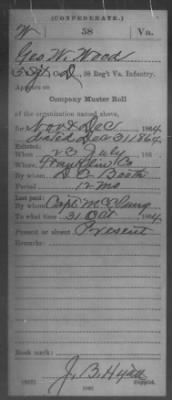 (CONFEDERATE.)
W 58 Va.
Geo. W. Wood
Co. D, 58 Reg't Va. Infantry.
Appears on
Company Muster Roll
of the organization named above,
for Nov & Dec, 1864.
dated Dec 31 1864
Enlisted:
When 23 July, 186
Where Franklin Co
By whom D C Booth
Period 12 mo
Last paid:
By whom Capt McClung
To what time 31 Oct, 1864.
Present or absent Present
Remarks:
Book mark:
J. B. Hyde
Copyist.